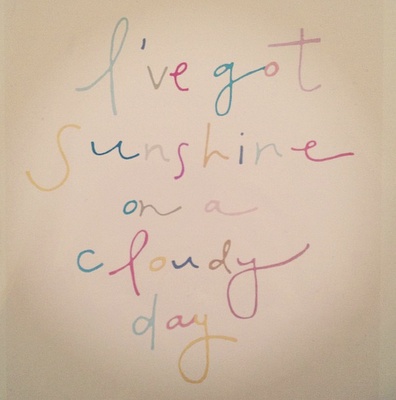 I've got
Sunshine
on a
cloudy
day